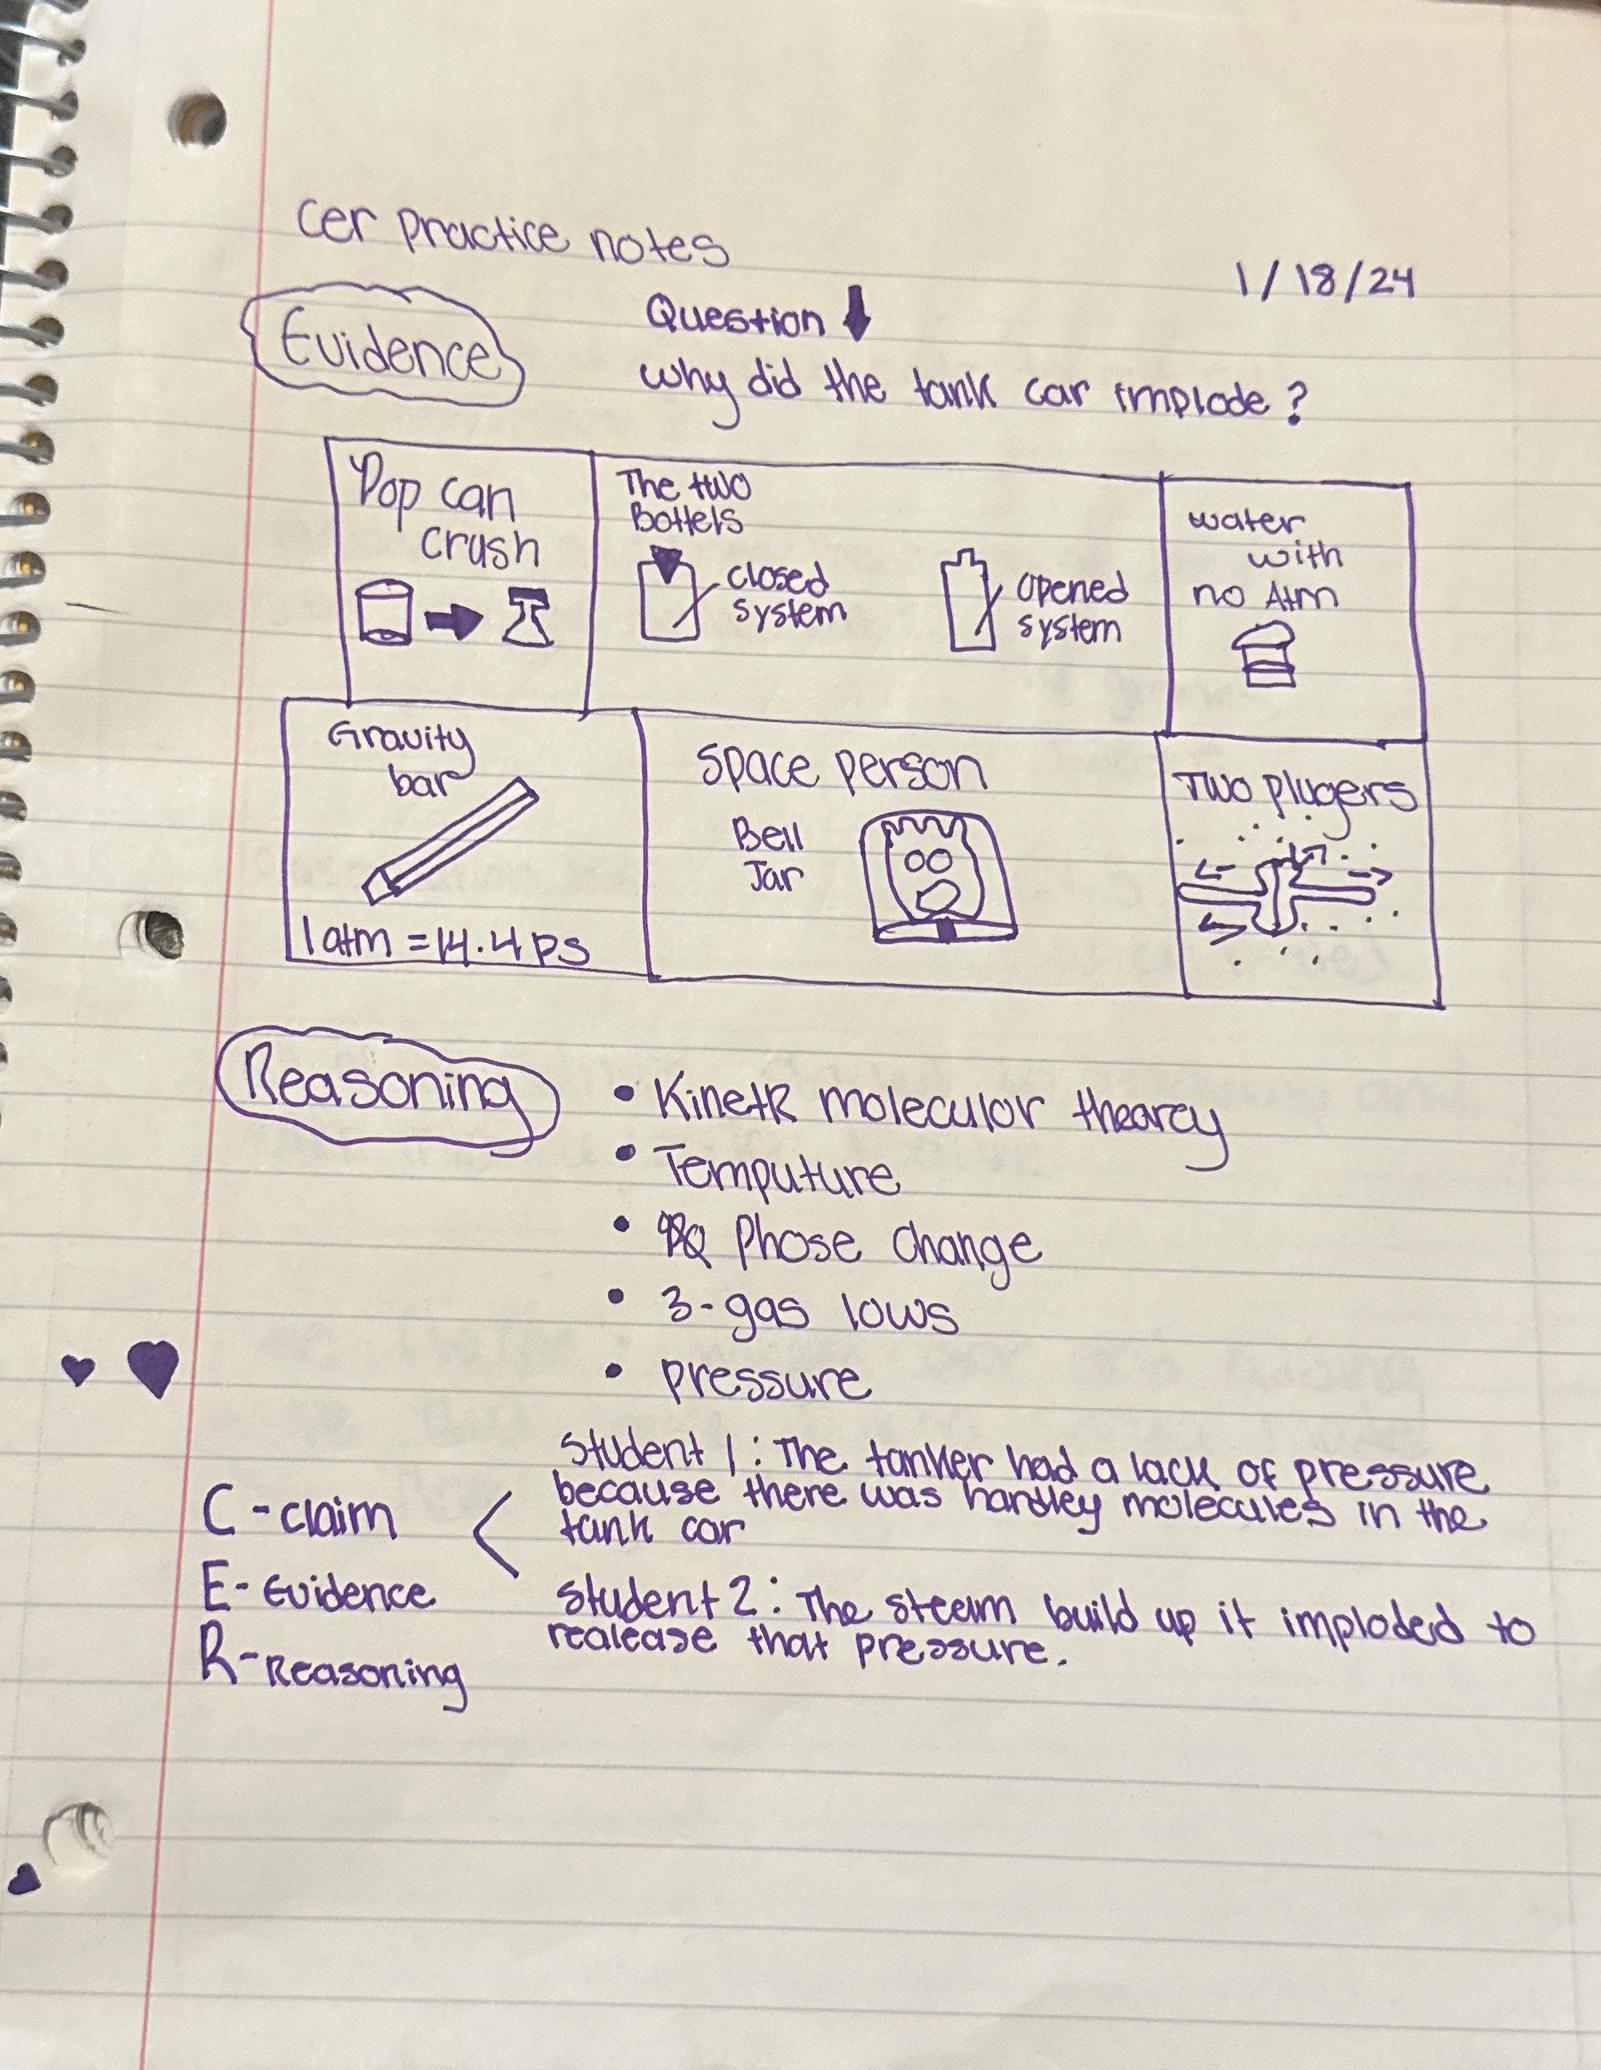 Cer practice notes
1/18/24
Evidence
Question
why did the tank car implode?
Pop can
crush
The two
Bottels
closed
system
opened
system
water
with
no Atm
Gravity
bar
1 atm = 14.4 ps
Space person
Bell
Jar
Two plugers
Reasoning
• Kinetic moleculor thearcy
• Temputure
• Phose change
• 3-gas lows
• pressure
C - claim
E - Evidence
R - Reasoning
Student 1: The tanker had a lack of pressure
because there was hardley molecules in the
tank car
Student 2: The steam build up it imploded to
realease that pressure.